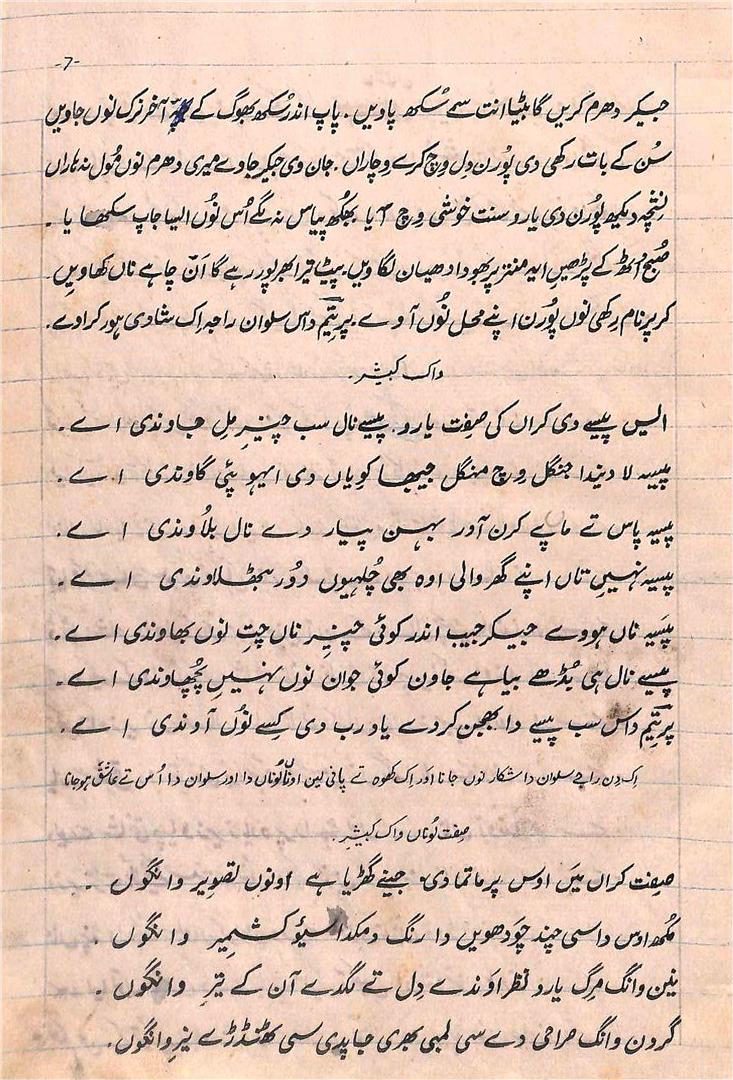 -7-
جیکر دھرم کریں گا بیٹیا انت سے سُکھ پاویں . پاپ اندر سُکھ بھوگ کے آخر نرک نوں جاویں
سُن کے بات رکھی دی پُورن دِل وِچ کرے وچاراں . جان وی جیکر جاوے میری دھرم نوں مُول نہ ہاراں
نشچہ دیکھ پُورن دی یارو سنت خوشی وِچ آیا بھُکھ پیاس نہ لگے اُس نُوں ایسا جاپ سکھایا .
صُبح اُٹھ کے پڑھیں ایہ منتر پربھو دا دھیان لگاویں . پیٹ تیرا بھرپور رہے گا اَنّ چاہے ناں کھاویں
کر پرنام رکھی نوں پُورن اپنے محل نُوں آوے . پریتم داس سلوان راجہ اِک شادی ہور کراوے .
واک کبیشر .
ایس پیسے دی کراں کی صِفت یارو . پیسے نال سب چیز مِل جاوندی اے .
پیسہ لا دیندا جنگل وِچ منگل جیبھا کویاں دی ایہو پئی گاوندی اے .
پیسہ پاس تے ماپے کرن آدر بہن پیار دے نال بلاوندی اے .
پیسہ نہیں تاں اپنے گھر والی اوہ بھی چُلہیوں دُور بٹھلاوندی اے .
پیسہ ناں ہووے جیکر جیب اندر کوئی چیز ناں چِت نوں بھاوندی اے .
پیسے نال ہی بُڈھے بیاہے جاون کوئی جوان نوں نہیں پُچھاوندی اے .
پریتم داس سب پیسے دا بھجن کردے یاد رب دی کِسے نوں آوندی اے .
اِک دِن راجے سلوان دا شکار نوں جانا اور اِک کھوہ تے پانی لین اونّاں لُوناں دا اور سلوان دا اُس تے عاشق ہو جانا
صِفت لُوناں واک کبیشر .
صِفت کراں مَیں اوس پرماتما دی جینے گھڑیا ہے اونوں تصویر وانگوں .
مُکھ اوس دا سی چند چودھویں دا رنگ دمکدا سیئو کشمیر وانگوں .
نین وانگ مِرگ یارو نظر اوندے دِل تے لگدے آن کے تیر وانگوں .
گردن وانگ صراحی دے سی لمبی بھری جاپدی سی ٹھنڈڑے نیر وانگوں .